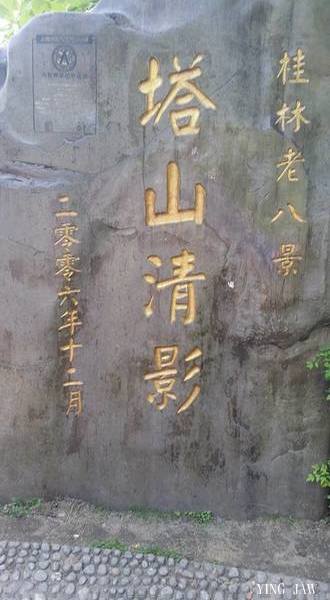 桂林老八景
塔山清影
二零零六年十二月
YING JAW